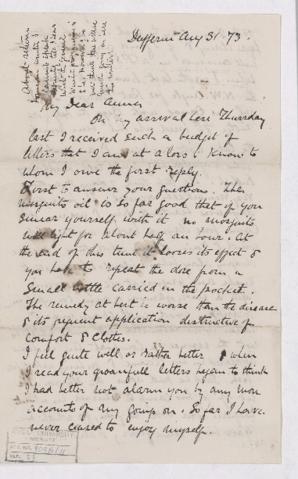 Dufferin Aug 31 - 73.
My Dear Anna
On my arrival here Thursday
last I received such a budget of
letters that I am at a loss to know to
whom I owe the first reply.
First to answer your questions. The
mosquito oil is so far good that if you
smear yourself with it no mosquito
will light for about half an hour. At
the end of this time it loses its effect &
you have to repeat the dose from a
small bottle carried in the pocket.
The remedy at best is worse than the disease
& its frequent application distructive of
comfort & clothes.
I feel quite well or rather better & when
I read your letters began to think
I had better not alarm you by any more
accounts of my goings on. So far I have
never ceased to enjoy myself.